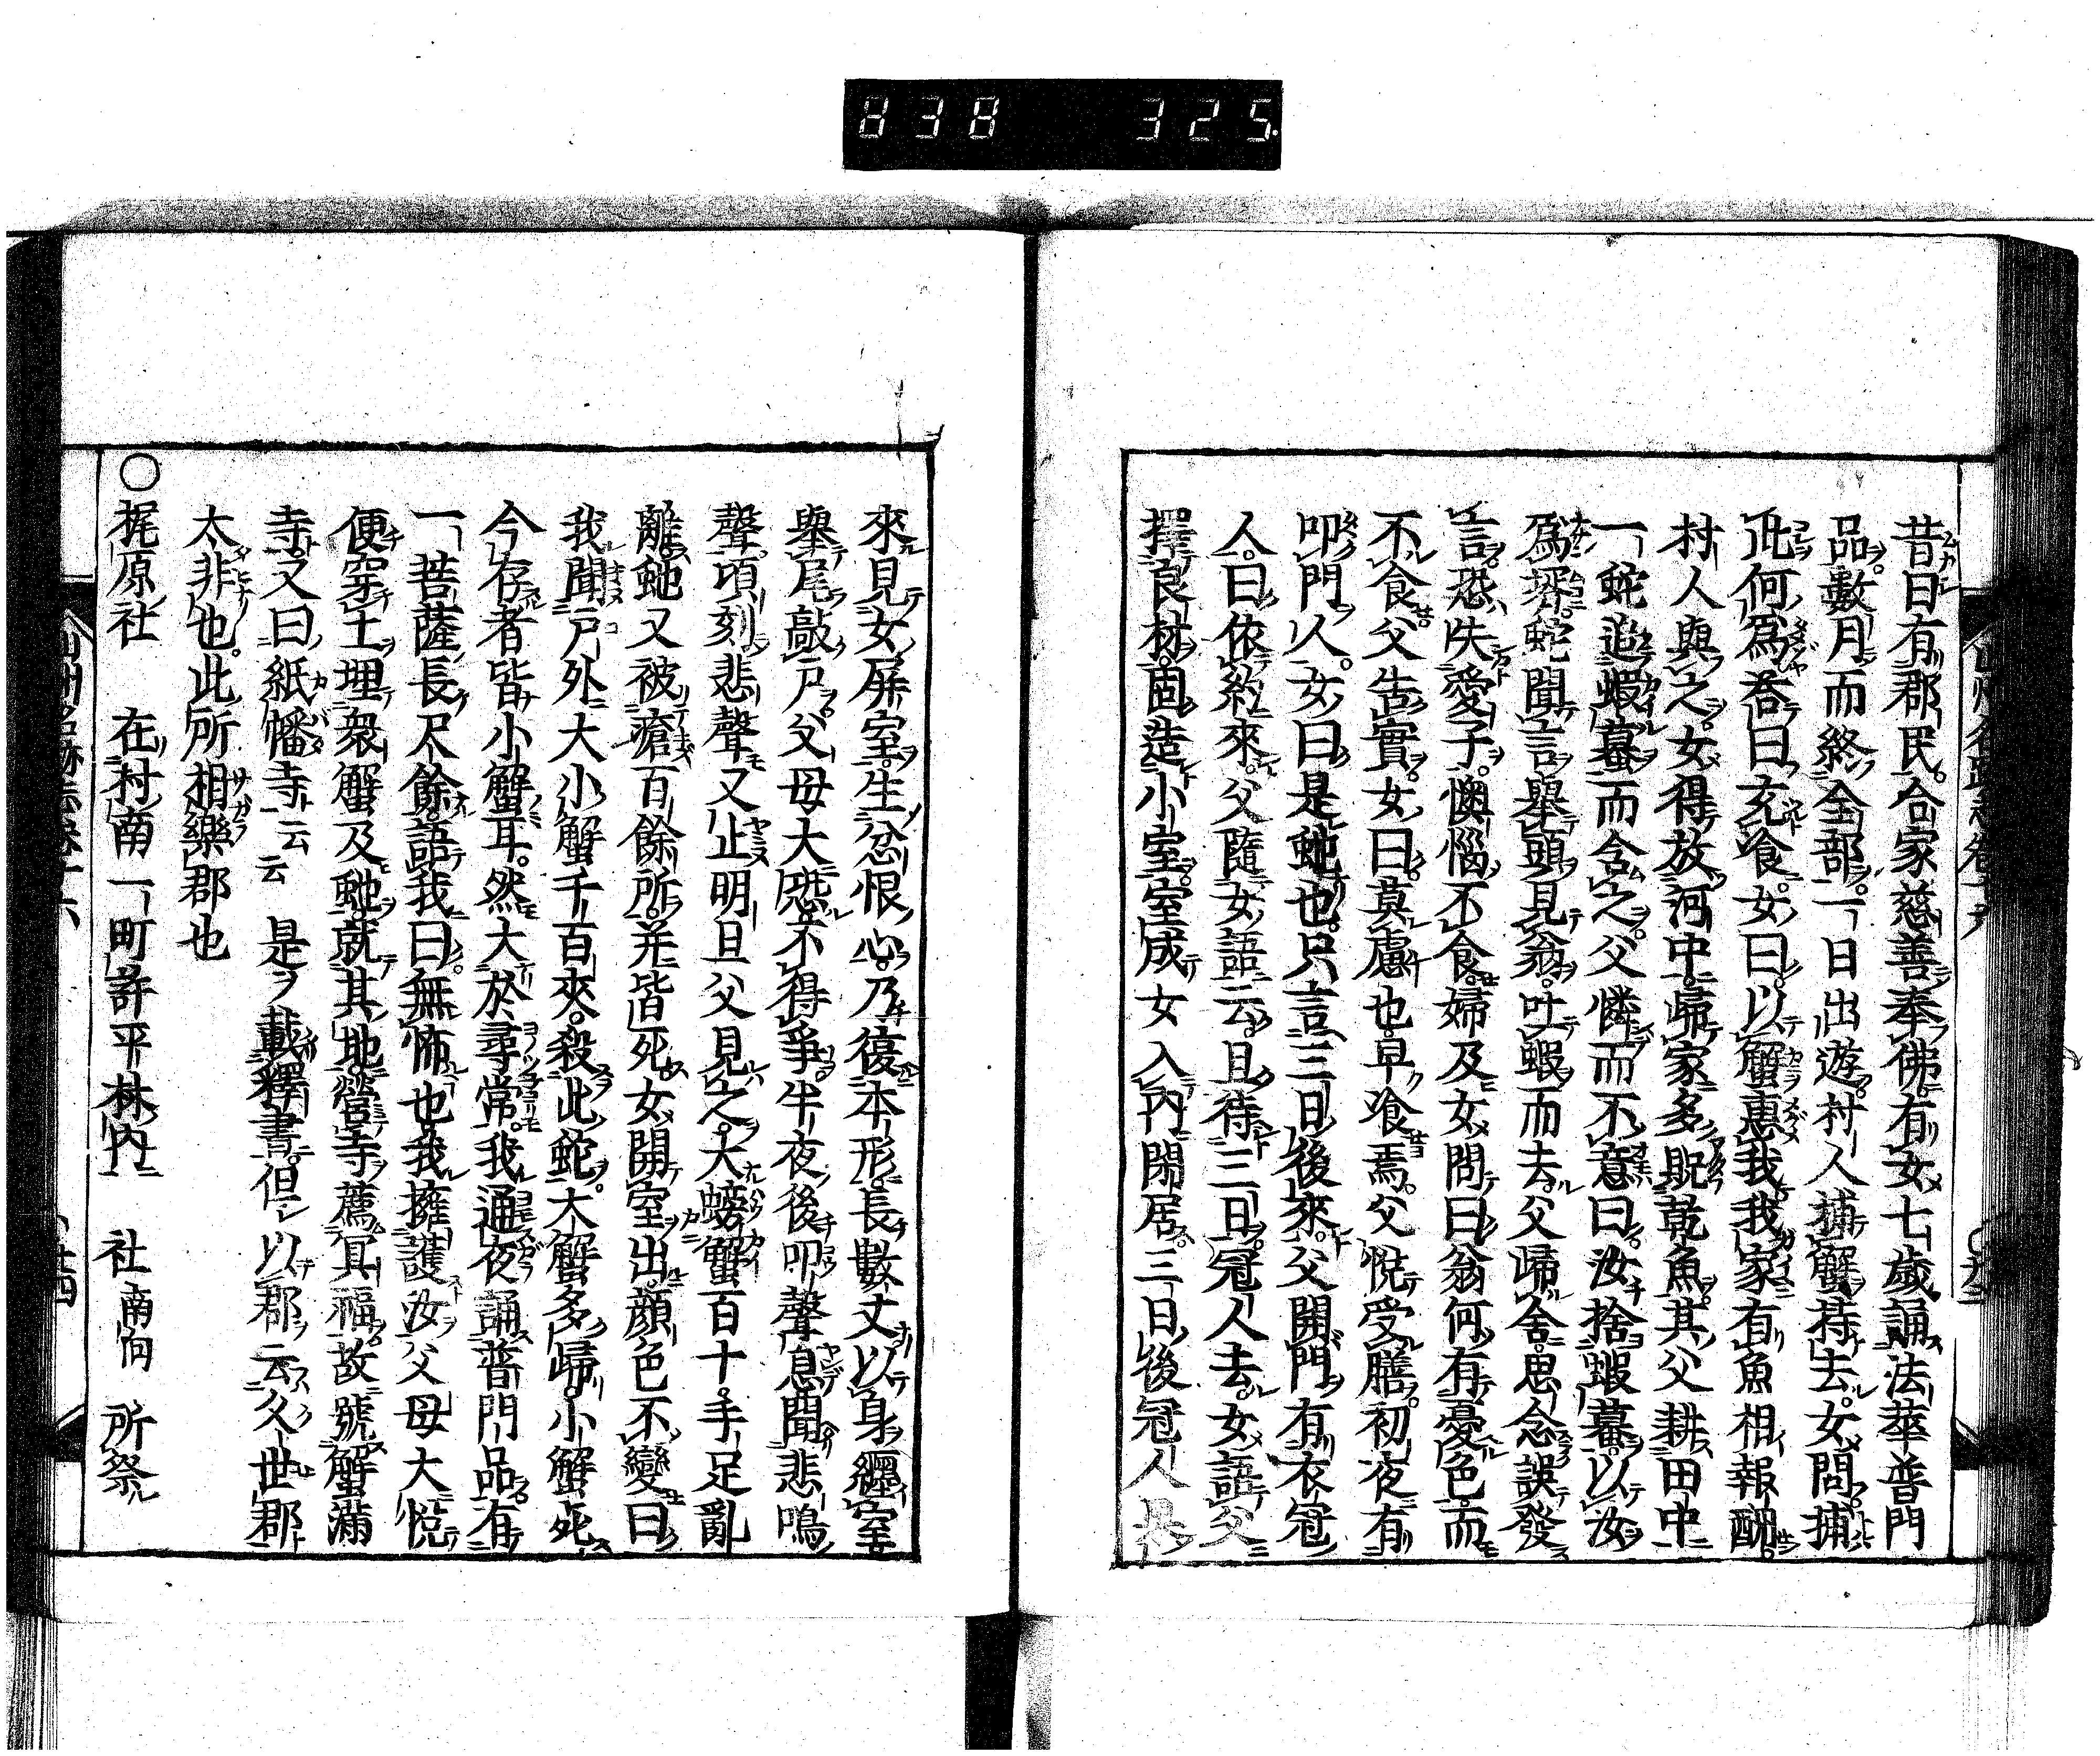 838 325
昔日有郡民。合家慈善奉佛有女七歲誦法華普門
品。數月而終全部。一日出遊。村人捕蟹持去。女問捕
此何爲荅曰充飡。女曰。以蟹惠我我家有魚相報酬。
村人與之。女得放河中。歸家多貺乾魚。其父耕田中
一蛇追蝦蟇而含之。父憐而不意曰。汝捨蝦蟇。以汝
爲壻。蛇聞言舉頭見翁。吐蝦而去。父歸舍。思念誤發
言。恐失愛子。懊惱不食。婦及女問曰翁何有憂色而
不食父告實。女曰。莫慮也早飡焉。父悅受膳。初夜有
叩門人。女曰是虵也。只言三日後來。父開門有衣冠
人。曰依約來。父隨女語云。且待三日。冠人去。女語父
擇良材。固造小室。室成女入內閑居。三日後冠人
來見女屏室。生忿恨心。乃復本形。長數丈以身纏室
舉尾敲戶。父母大恐不得爭半夜後叩聲息聞悲鳴
聲。頃刻悲聲又止明旦父見之。大螃蟹百十。手足亂
離。虵又被瘡百餘所。并皆死。女開室出。顔色不變曰
我聞戶外大小蟹千百來。殺此蛇。大蟹多歸。小蟹死
今存者皆小蟹耳。然大於尋常。我通夜誦普門品。有
一菩薩長尺餘。語我曰。無怖也。我擁護汝父母大悅
便穿土埋衆蟹及虵。就其地。營寺薦冥福。故號蟹滿
寺。又曰紙幡寺云云 是ヲ載釋書。但以郡云久世郡
太非也。此所相樂郡也
○ 梶原社 在村南一町許平林內 社南向 所祭